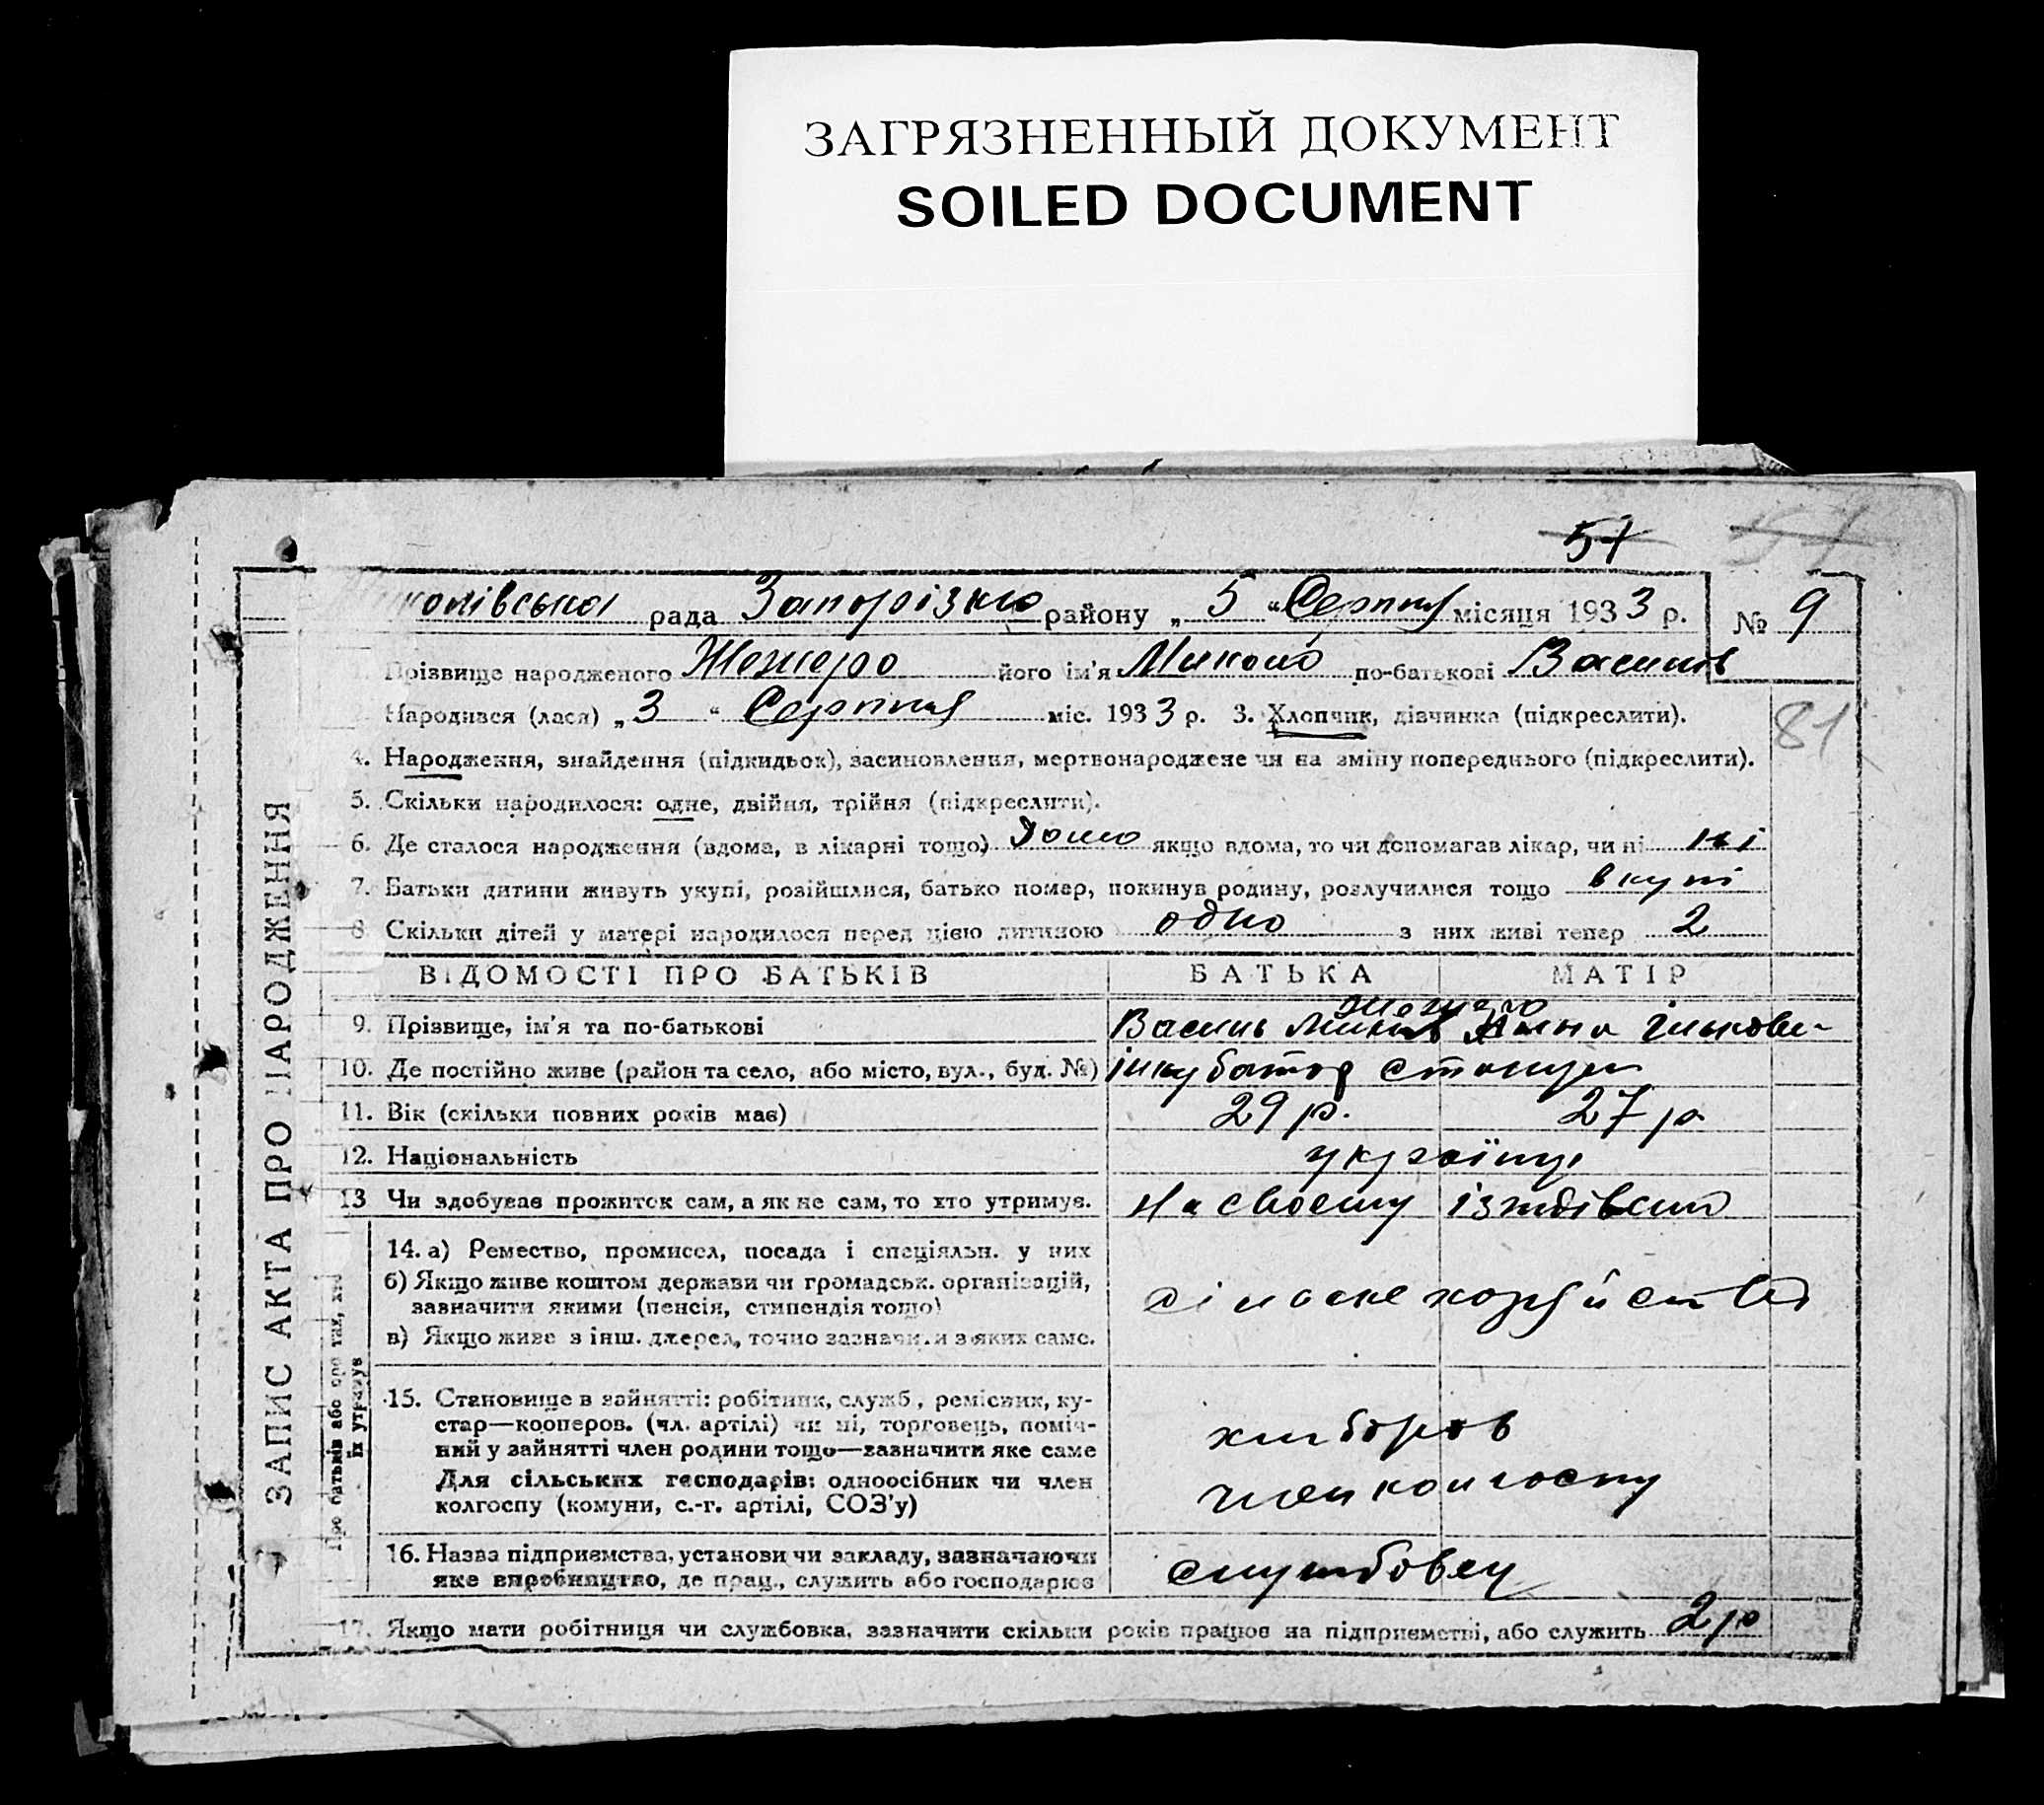 ЗАГРЯЗНЕННЫЙ ДОКУМЕНТ
SOILED DOCUMENT
57
57
рада Запорізько району „ 5 “ Серпня місяця 1933 р. № 9
Прізвище народженого його ім'я Микола по-батькові Василів
Народився (лася) „ 3 “ Серпня міс. 1933 р. 3. Хлопчик, дівчинка (підкреслити).
81
4. Народження, знайдення (підкидьок), засиновлення, мертвонароджене чи на зміну попереднього (підкреслити).
5. Скільки народилося: одне, двійня, трійня (підкреслити).
6. Де сталося народження (вдома, в лікарні тощо) дома якщо вдома, то чи допомагав лікар, чи ні ні
7. Батьки дитини живуть укупі, розійшлися, батько помер, покинув родину, розлучилися тощо вкупі
8. Скільки дітей у матері народилося перед цією дитиною одно з них живі тепер 2
ВІДОМОСТІ ПРО БАТЬКІВ БАТЬКА МАТІР
9. Прізвище, ім'я та по-батькові Василь Ганна
10. Де постійно живе (район та село, або місто, вул., буд. №) інкубатор станція
11. Вік (скільки повних років має) 29 р. 27 р
12. Національність українці
13 Чи здобував прожиток сам, а як не сам, то хто утримує. На своєму
14. а) Ремество, промисел, посада і спеціяльн. у них
б) Якщо живе коштом держави чи громадськ. організацій,
зазначити якими (пенсія, стипендія тощо)
в) Якщо живе з інш. джерел, точно зазначити з яких саме.
15. Становище в зайнятті: робітник, служб., ремісник, ку-
стар—кооперов. (чл. артілі) чи ні, торговець, поміч-
ний у зайнятті член родини тощо—зазначити яке саме
Для сільських господарів: одноосібник чи член
колгоспу (комуни, с.-г. артілі, СОЗ'у)
хлібороб
член колгоспу
16. Назва підприємства, установи чи закладу, зазначаючи
яке виробництво, де прац., служить або господарює
службовец
17. Якщо мати робітниця чи службовка, зазначити скільки років працює на підприємстві, або служить 2 р
ЗАПИС АКТА ПРО НАРОДЖЕННЯ
Про батьків або про тих, хто
їх утримує